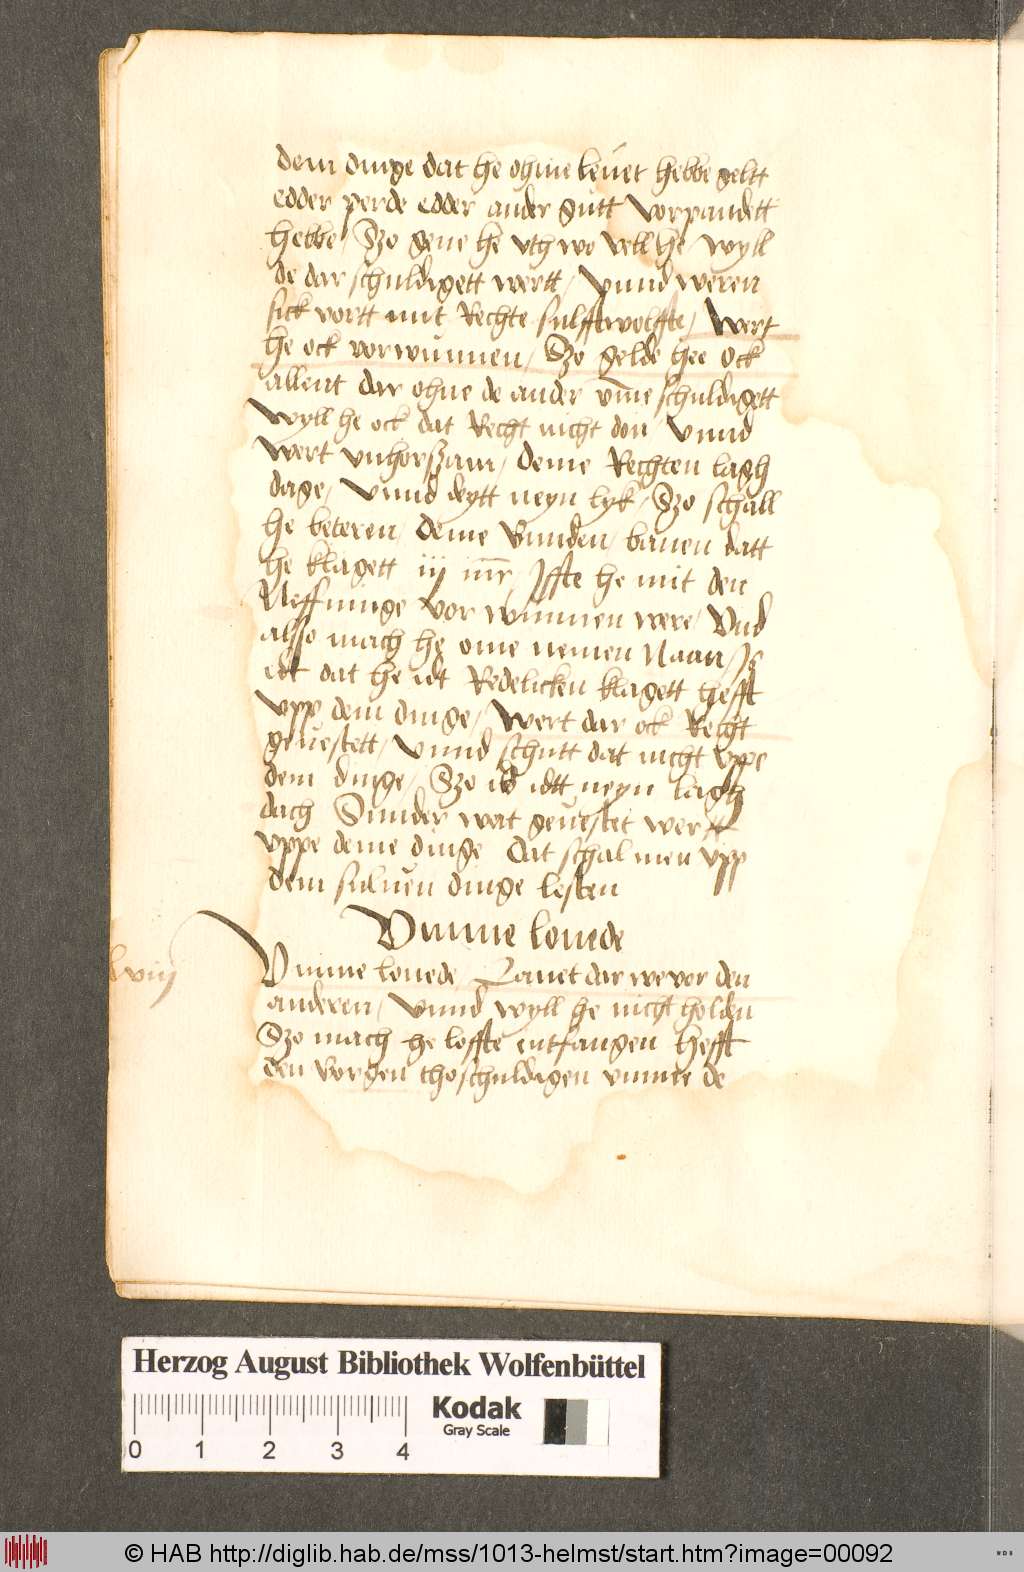 dem dinge dat he ohme leuet hebbe geltt
edder perde edder ander gutt vorpandett
hebbe / Szo geue he vth wo vell he wyll
de dar schuldigett wertt / Vnnd weren
sick vortt mit Rechte sulfftwolffte / Wert
he ock vorwunnen / Szo gelde hee Ock
allent dar ohne de ander vm̄e schuldigett
wyll he ock dat Recht nicht don / Vnnd
wert vnhorßam / deme Rechten lagh
dage / Vnnd deytt neyn lyk / Szo schall
he beteren / deme Bunden / bauen datt
he klagett iij mr̄ / Iffte he mit den
Neffninge vor wunnen were / Vnd
alßo mach he ome nemen Naan / Is
idt dat he idt Redelicken klagett hefft
vpp dem dinge / Wert dar ock Recht
geuestett / Vnnd schutt dat nicht vppe
dem dinge / Szo is idtt neyn lagh
dach Sunder wat geuestet wertt
vppe deme dinge dat schal men vpp
dem suluen dinge lesten
Vmme louede
lviij
Vmme louede / Lauet dar we vor den
anderen / Vnnd wyll he nicht holden
Szo mach he loffte entfangen hefft
den borgen thoschuldigen vmme de
Herzog August Bibliothek Wolfenbüttel
Kodak
Gray Scale
0 1 2 3 4
© HAB http://diglib.hab.de/mss/1013-helmst/start.htm?image=00092